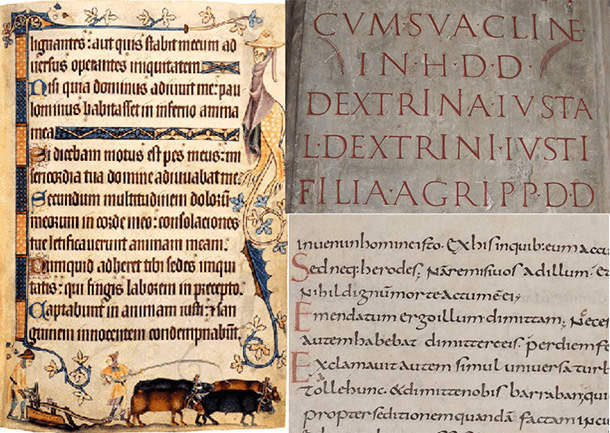 lignantes: aut quis stabit mecum ad
versus operantes iniquitatem
Nisi quia dominus adiuvit me: pau
lominus habitasset in inferno anima
mea
Si dicebam motus est pes meus: mi
sericordia tua domine adiuvabat me
Secundum multitudinem dolorum
meorum in corde meo: consolaciones
tue letificaverunt animam meam.
Numquid adheret tibi sedes iniqui
tatis: qui fingis laborem in precepto.
Captabunt in animam iusti: 7 san
guinem innocentem condempnabunt.
CVM·SVA·CLINE
IN·H·D·D·
DEXTRINA·IVSTA
L·DEXTRINI·IVSTI
FILIA·AGRIPP·D·D
hominēisto. Ex his inquib: eum accu
Sed neq: herodes; Nā remisi vos adillum. Et
Nihil dignum morte actum ē ei;
Emendatum ergo illum dimittam; Neces
autem habebat dimittere eis. per diem fe
Exclamavit autem simul universa turb
Tolle hunc. & dimitte nobis barraban qui
propter seditionem quandā factam in